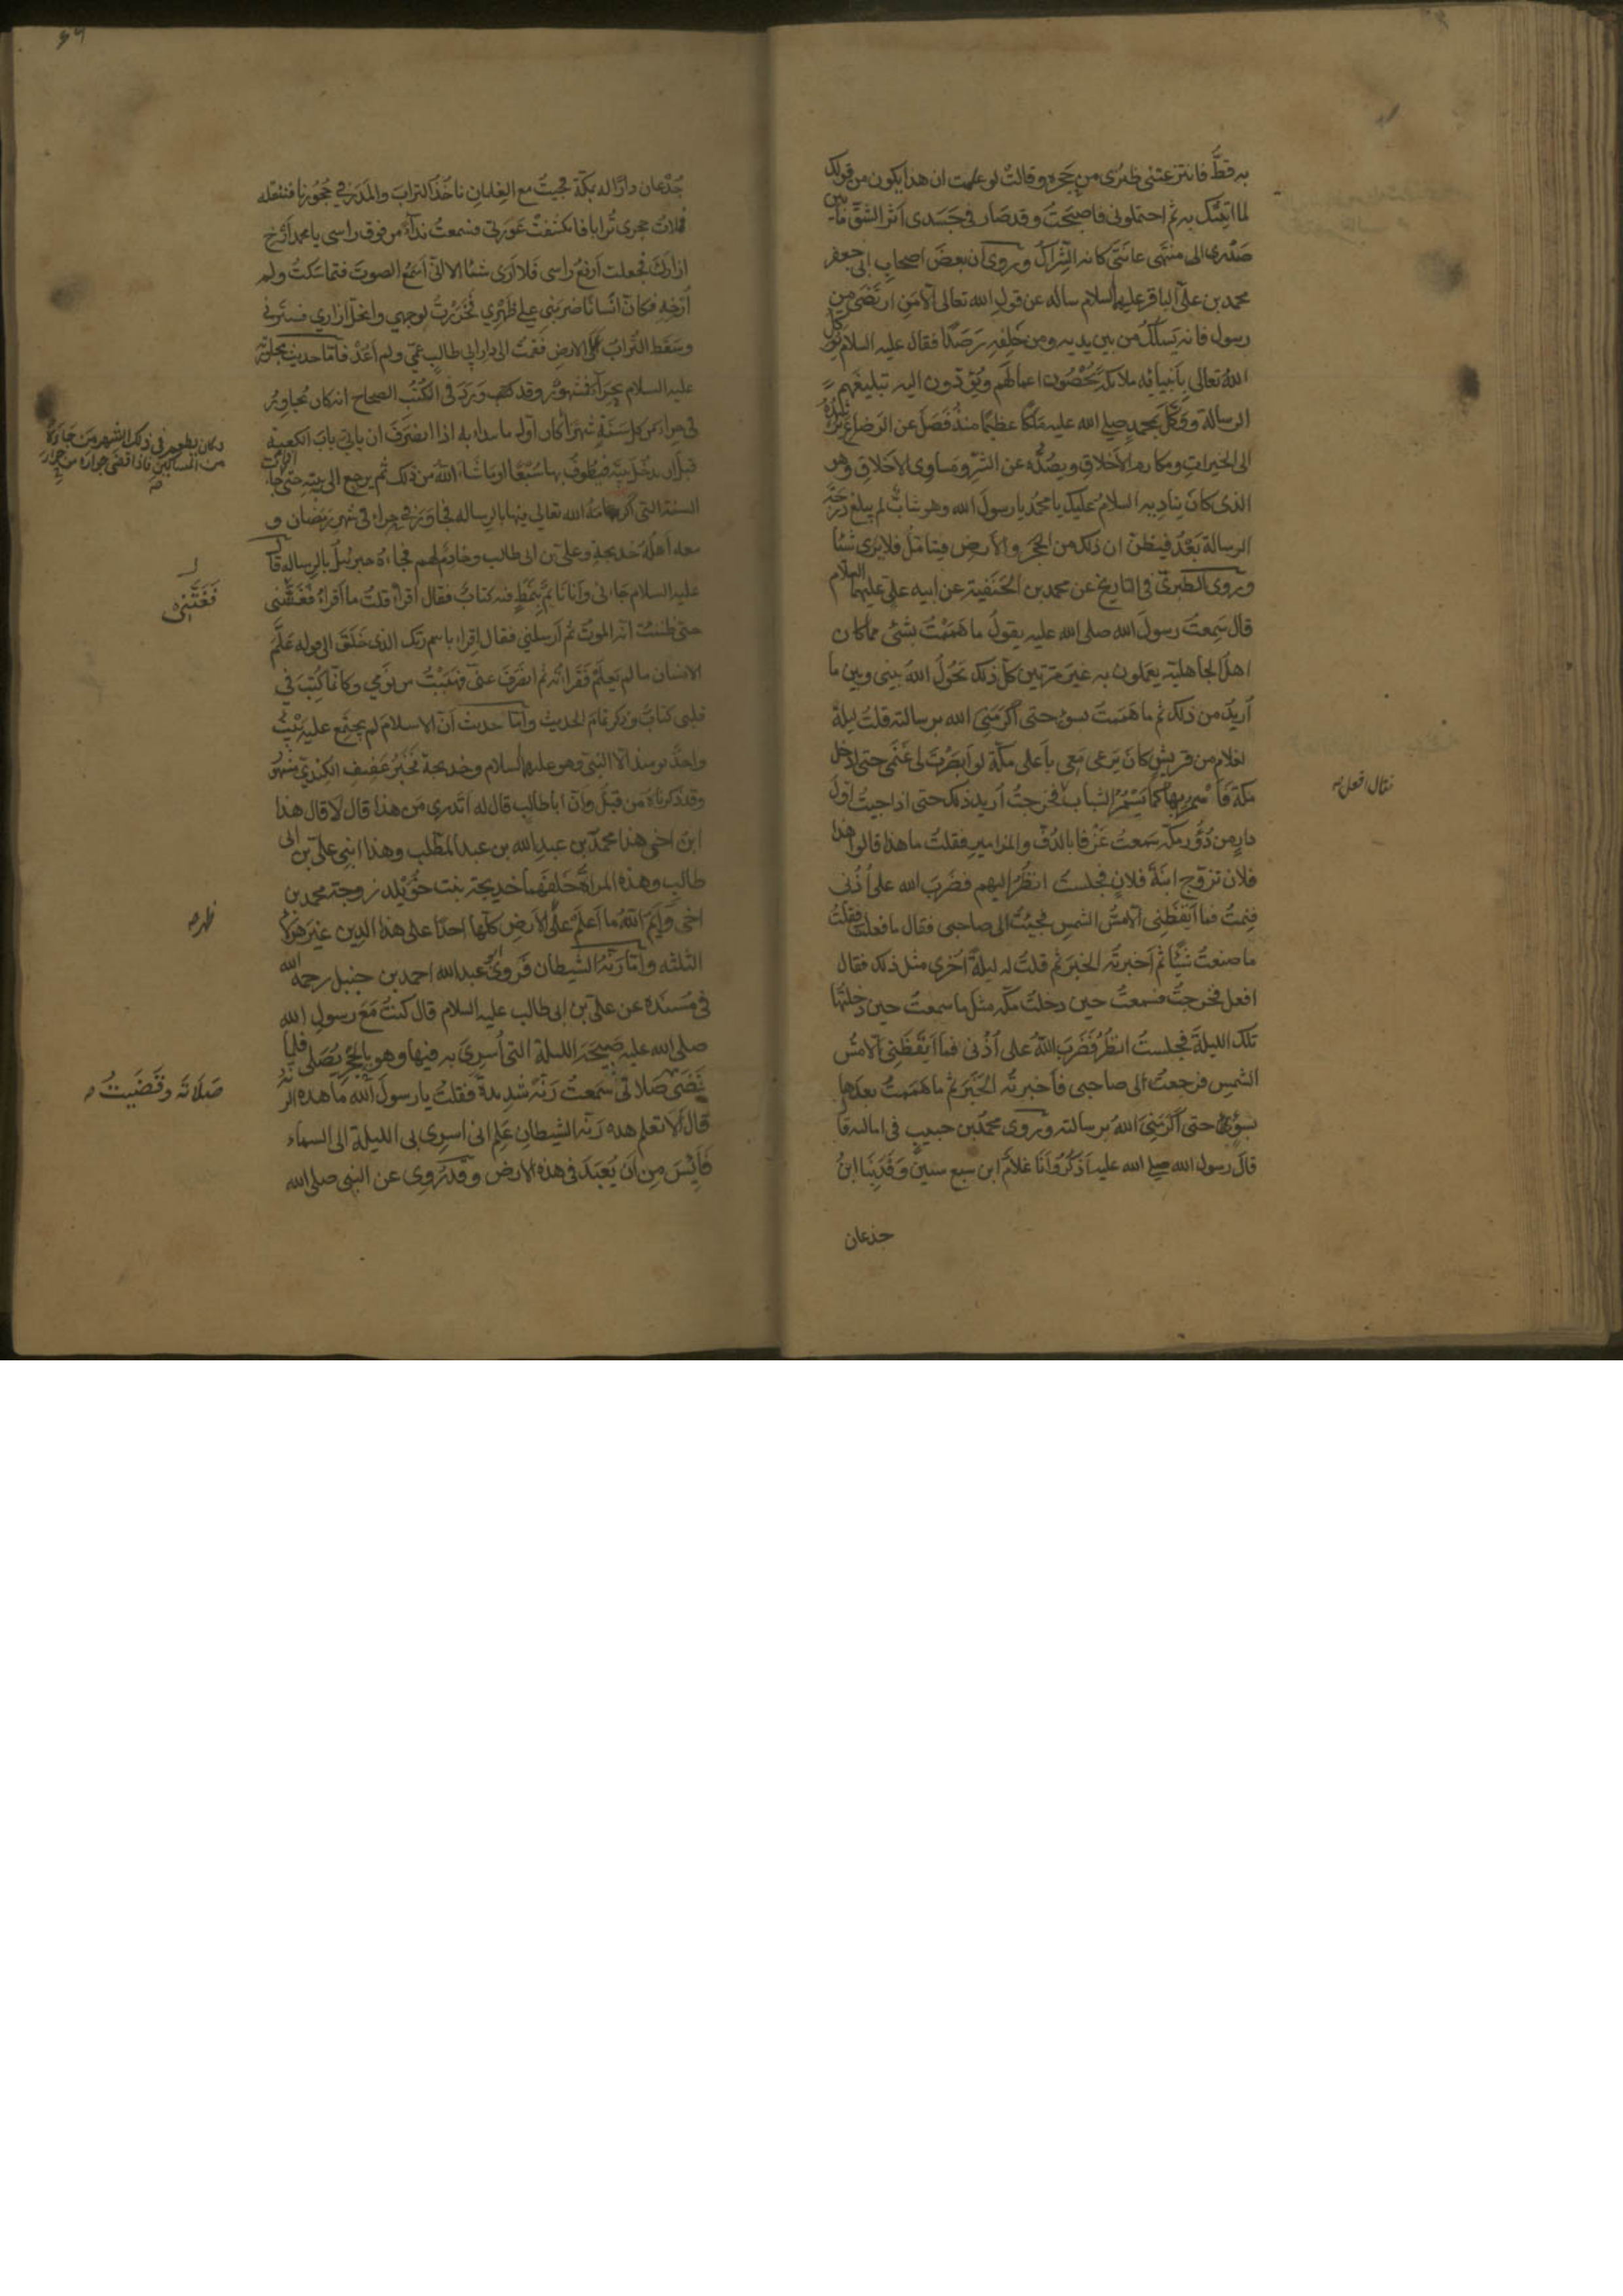 به قط فانتزعتنى ظئرى من حجره وقالت لو علمت ان هذا يكون من قولك
لما اتيتك به ثم احتملونى فاصبحت وقد صار فى جسدى اثر الشق ما بين
صدرى الى منتهى عانتى كانه الشراك وروى ان بعض اصحاب ابى جعفر
محمد بن على الباقر عليهما السلام ساله عن قول الله تعالى الا من ارتضى من
رسول فانه يسلك من بين يديه ومن خلفه رصدا فقال عليه السلام يوكل
الله تعالى بانبيائه ملائكة يحصون اعمالهم ويؤدون اليه تبليغهم
الرسالة ووكل بمحمد صلى الله عليه ملكا عظيما منذ فصل عن الرضاع يرشده
الى الخيرات ومكارم الاخلاق ويصده عن الشر ومساوى الاخلاق وهو
الذى كان يناديه السلام عليك يا محمد يا رسول الله وهو شاب لم يبلغ درجة
الرسالة بعد فيظن ان ذلك من الحجر والارض فيتامل فلا يرى شئا
وروى الطبرى فى التاريخ عن محمد بن الحنفية عن ابيه على عليهما السلام
قال سمعت رسول الله صلى الله عليه يقول ما هممت بشئ مما كان
اهل الجاهلية يعملون به غير مرتين كل ذلك يحول الله بينى وبين ما
اريد من ذلك ثم ما هممت بسوء حتى اكرمنى الله برسالته قلت ليلة
لغلام من قريش كان يرعى معى باعلى مكة لو ابصرت لى غنمى حتى ادخل
مكة فاسمر بها كما يسمر الشباب فخرجت اريد ذلك حتى اذا جيت اول
فقال افعل
دار من دور مكة سمعت عزفا بالدف والمزامير فقلت ما هذا قالوا هذا
فلان تزوج ابنة فلان فجلست انظر اليهم فضرب الله على اذنى
فنمت فما ايقظنى الا مس الشمس فجيت الى صاحبى فقال ما فعلت فقلت
ما صنعت شيئا ثم اخبرته الخبر ثم قلت له ليلة اخرى مثل ذلك فقال
افعل فخرجت فسمعت حين دخلت مكة مثل ما سمعت حين دخلتها
تلك الليلة فجلست انظر فضرب الله على اذنى فما ايقظنى الا مس
الشمس فرجعت الى صاحبى فاخبرته الخبر ثم ما هممت بعدها
بسوء حتى اكرمنى الله برسالته وروى محمد بن حبيب فى اماليه قا
قال رسول الله صلى الله عليه اذكر وانا غلام ابن سبع سنين وقد بنا ابن
جذعان
جدعان دارا له بمكة فجيت مع الغلمان ناخذ التراب والمدر فى حجورنا فننقله
فملات حجرى ترابا فانكشفت عورتى فسمعت نداء من فوق راسى يا محمد ارخ
ازارك فجعلت ارفع راسى فلا ارى شيئا الا انى اسمع الصوت فتماسكت ولم
ارخه فكان انسانا ضربنى على ظهرى فخررت لوجهى وانحل ازارى فسترنى
وسقط التراب على الارض فقمت الى دار ابى طالب عمى ولم اعد فاما حديث مجاورته
عليه السلام بحراء فمشهور وقد ورد فى الكتب الصحاح انه كان يجاور
فى حراء من كل سنة شهرا كان اول ما يبدا به اذا انصرف ان ياتى باب الكعبة
وكان يطعم فى ذلك الشهر من جاءه
من المساكين فاذا قضى جواره من حراء
قبل ان يدخل بيته فيطوف بها سبعا او ما شاء الله من ذلك ثم يرجع الى بيته حتى جاءت
السنة التى اكرمه الله تعالى فيها بالرسالة فجاور فى حراء فى شهر رمضان و
معه اهله خديجة وعلى بن ابى طالب وخادم لهم فجاءه جبرئيل بالرسالة قا
عليه السلام جاءنى وانا نائم بنمط فيه كتاب فقال اقرا قلت ما اقرا فغتنى
فغتنى
حتى ظننت انه الموت ثم ارسلنى فقال اقرا باسم ربك الذى خلق الى قوله علم
الانسان ما لم يعلم فقراته ثم انصرف عنى فهببت من نومى وكانما كتب فى
قلبى كتاب وذكر تمام الحديث واما حديث ان الاسلام لم يجتمع عليه بيت
واحد يومئذ الا النبى وهو عليهم السلام وخديجة فخبر عفيف الكندى مشهور
وقد ذكرناه من قبل وان ابا طالب قال له اتدرى من هذا قال لا قال هذا
ابن اخى هذا محمد بن عبد الله بن عبد المطلب وهذا ابنى على بن ابى
طالب وهذه المراة خلفهما خديجة بنت خويلد زوجة محمد بن
اخى وايم الله ما اعلم على الارض كلها احدا على هذا الدين غير هؤلاء
ظهر
الثلثه واما رنة الشيطان فروى ابو عبد الله احمد بن حنبل رحمه الله
فى مسنده عن على بن ابى طالب عليه السلام قال كنت مع رسول الله
صلى الله عليه صبيحة الليلة التى اسرى به فيها وهو بالحجر يصلى فلما
قضى صلاتى سمعت رنة شديدة فقلت يا رسول الله ما هذه الرنة
صلاته وقضيت
قال الا تعلم هذه رنة الشيطان علم انى اسرى بى الليلة الى السماء
فايس من ان يعبد فى هذه الارض وقد روى عن النبى صلى الله